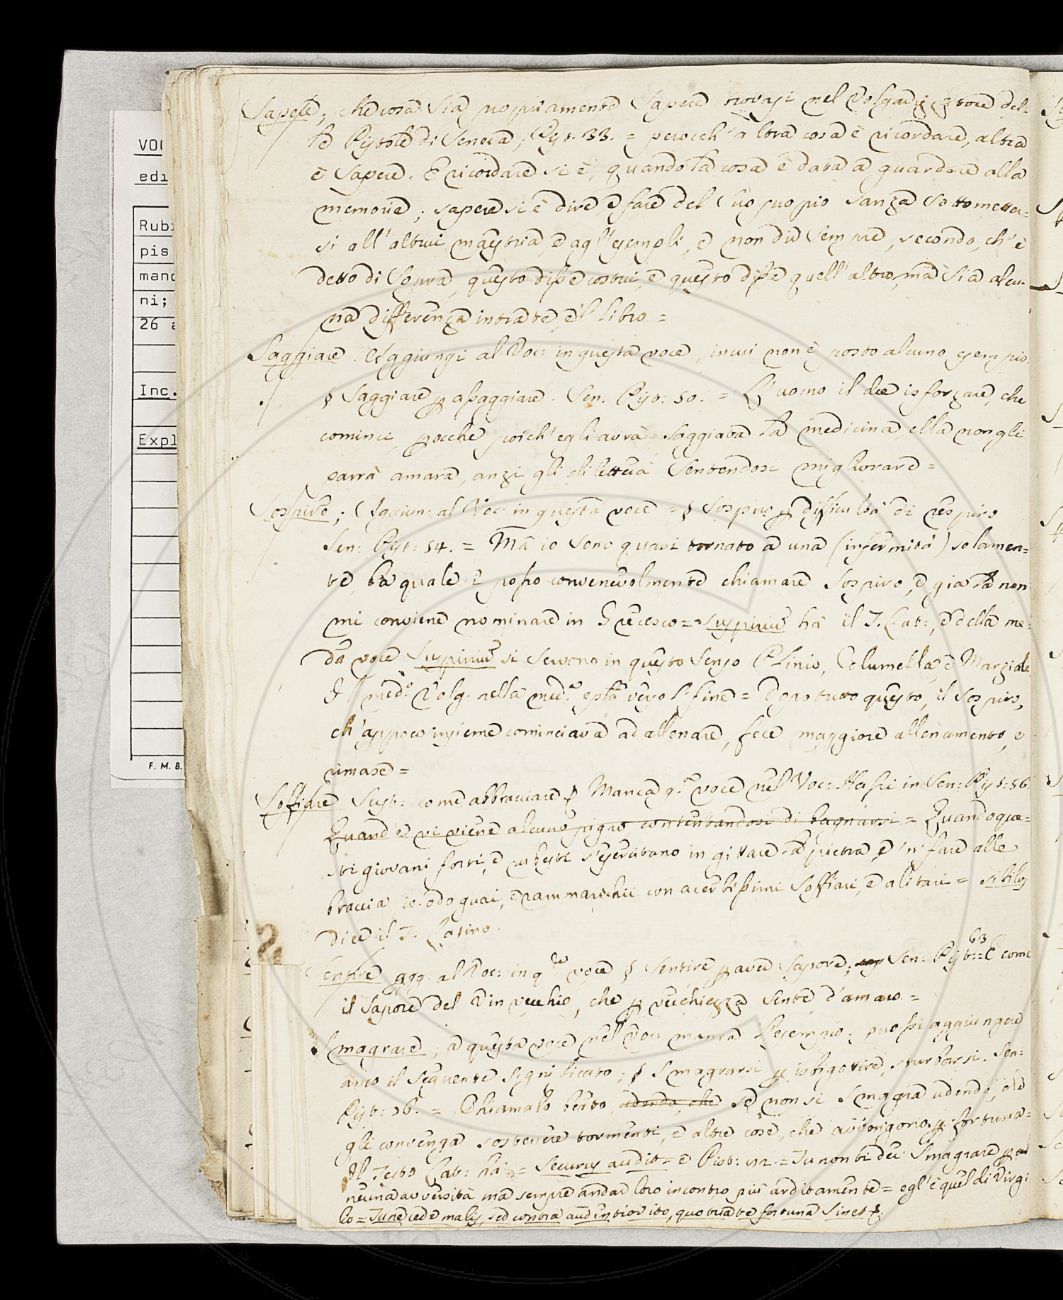 VOC
edi
Rub
pis
mano
ni;
26 a
Inc.
Expl
F. M. B.
Sapere, che cosa sia propriamente Sapere trovasi nel Volgarizzatore del-
le Pistole di Seneca, Pist. 33. = perocch'altra cosa è ricordare, altra
è sapere. E ricordare si è, quando la cosa è data a guardare alla
memoria; sapere si è dire e fare del suo propio sanza sottometter-
si all'altrui maestria, e agl'esempli, e non dir sempre, secondo, ch'è
detto di sopra, questo disse costui, e questo disse quell'altro, ma sia alcu-
na differenza intra te, e'l libro =
Saggiare. Aggiungi al Voc. in questa voce, in cui non è posto alcuno esempio
§ Saggiare p assaggiare. Sen. Pist. 50. = L'uomo il dee isforzare, che
cominci, perche poich'egli avrà saggiata la medicina ella non gli
parrà amara, anzi gli diletterà sentendosi migliorare =
Sospiro; Aggiun. al Voc. in questa voce = § Sospiro p difficultà di respiro
Sen. Pist. 54. = Ma io sono quasi tornato a una (infermità) solamen-
te, la quale i' posso convenevolmente chiamare sospiro, e già la non
mi conviene nominare in Grecesco = suspirium ha il T. Lat:, e della me-
da voce Suspirium si servono in questo senso Plinio, Columella, e Marziale
Il med.o Volg. nella med.a epist.a verso il fine = Dopo tutto questo, il sospiro,
ch'appoco insieme cominciava ad allenare, fece maggiore allenamento, e
rimase =
Soffiare Sust: come abbracciare § Manca q.a voce nel Voc: Hassi in Sen: Pist: 56
Quand'e vi viene alcuno contentandosi di bagnarsi = Quando que-
sti giovani forti, e s'esercitano in gittare la pietra, e 'n fare alle
braccia io odo guai, e rammarichii con acerbissimi soffiari, e alitari = sibilos
dice il T. Latino.
Sentire agg. al Voc: in q.ta voce § Sentire p aver sapore; Sen: Pist: 63 = E come
il sapore del vin vecchio, che p vecchiezza sente d'amaro =
Smagrare; a questa voce nel Voc: manca l'esempio; può si aggiungere
anco il seguente significato; § Smagrarsi p isbigottire, sturbarsi. Sen:
Pist: = Chiamalo beato, se non si smagra udendo, ch'e'
gli convenga sostenere tormenti, e altre cose, che avvengono p fortuna =
Il Testo Lat: ha = Securus audit = e Pist: = Tu non ti dei smagrare p
neuna avversità ma sempre andar loro incontro più arditamente = egl'è quel di Virgi
lio = Tu ne cede malis, sed contra audentior ito, quo tua te fortuna sinet §.